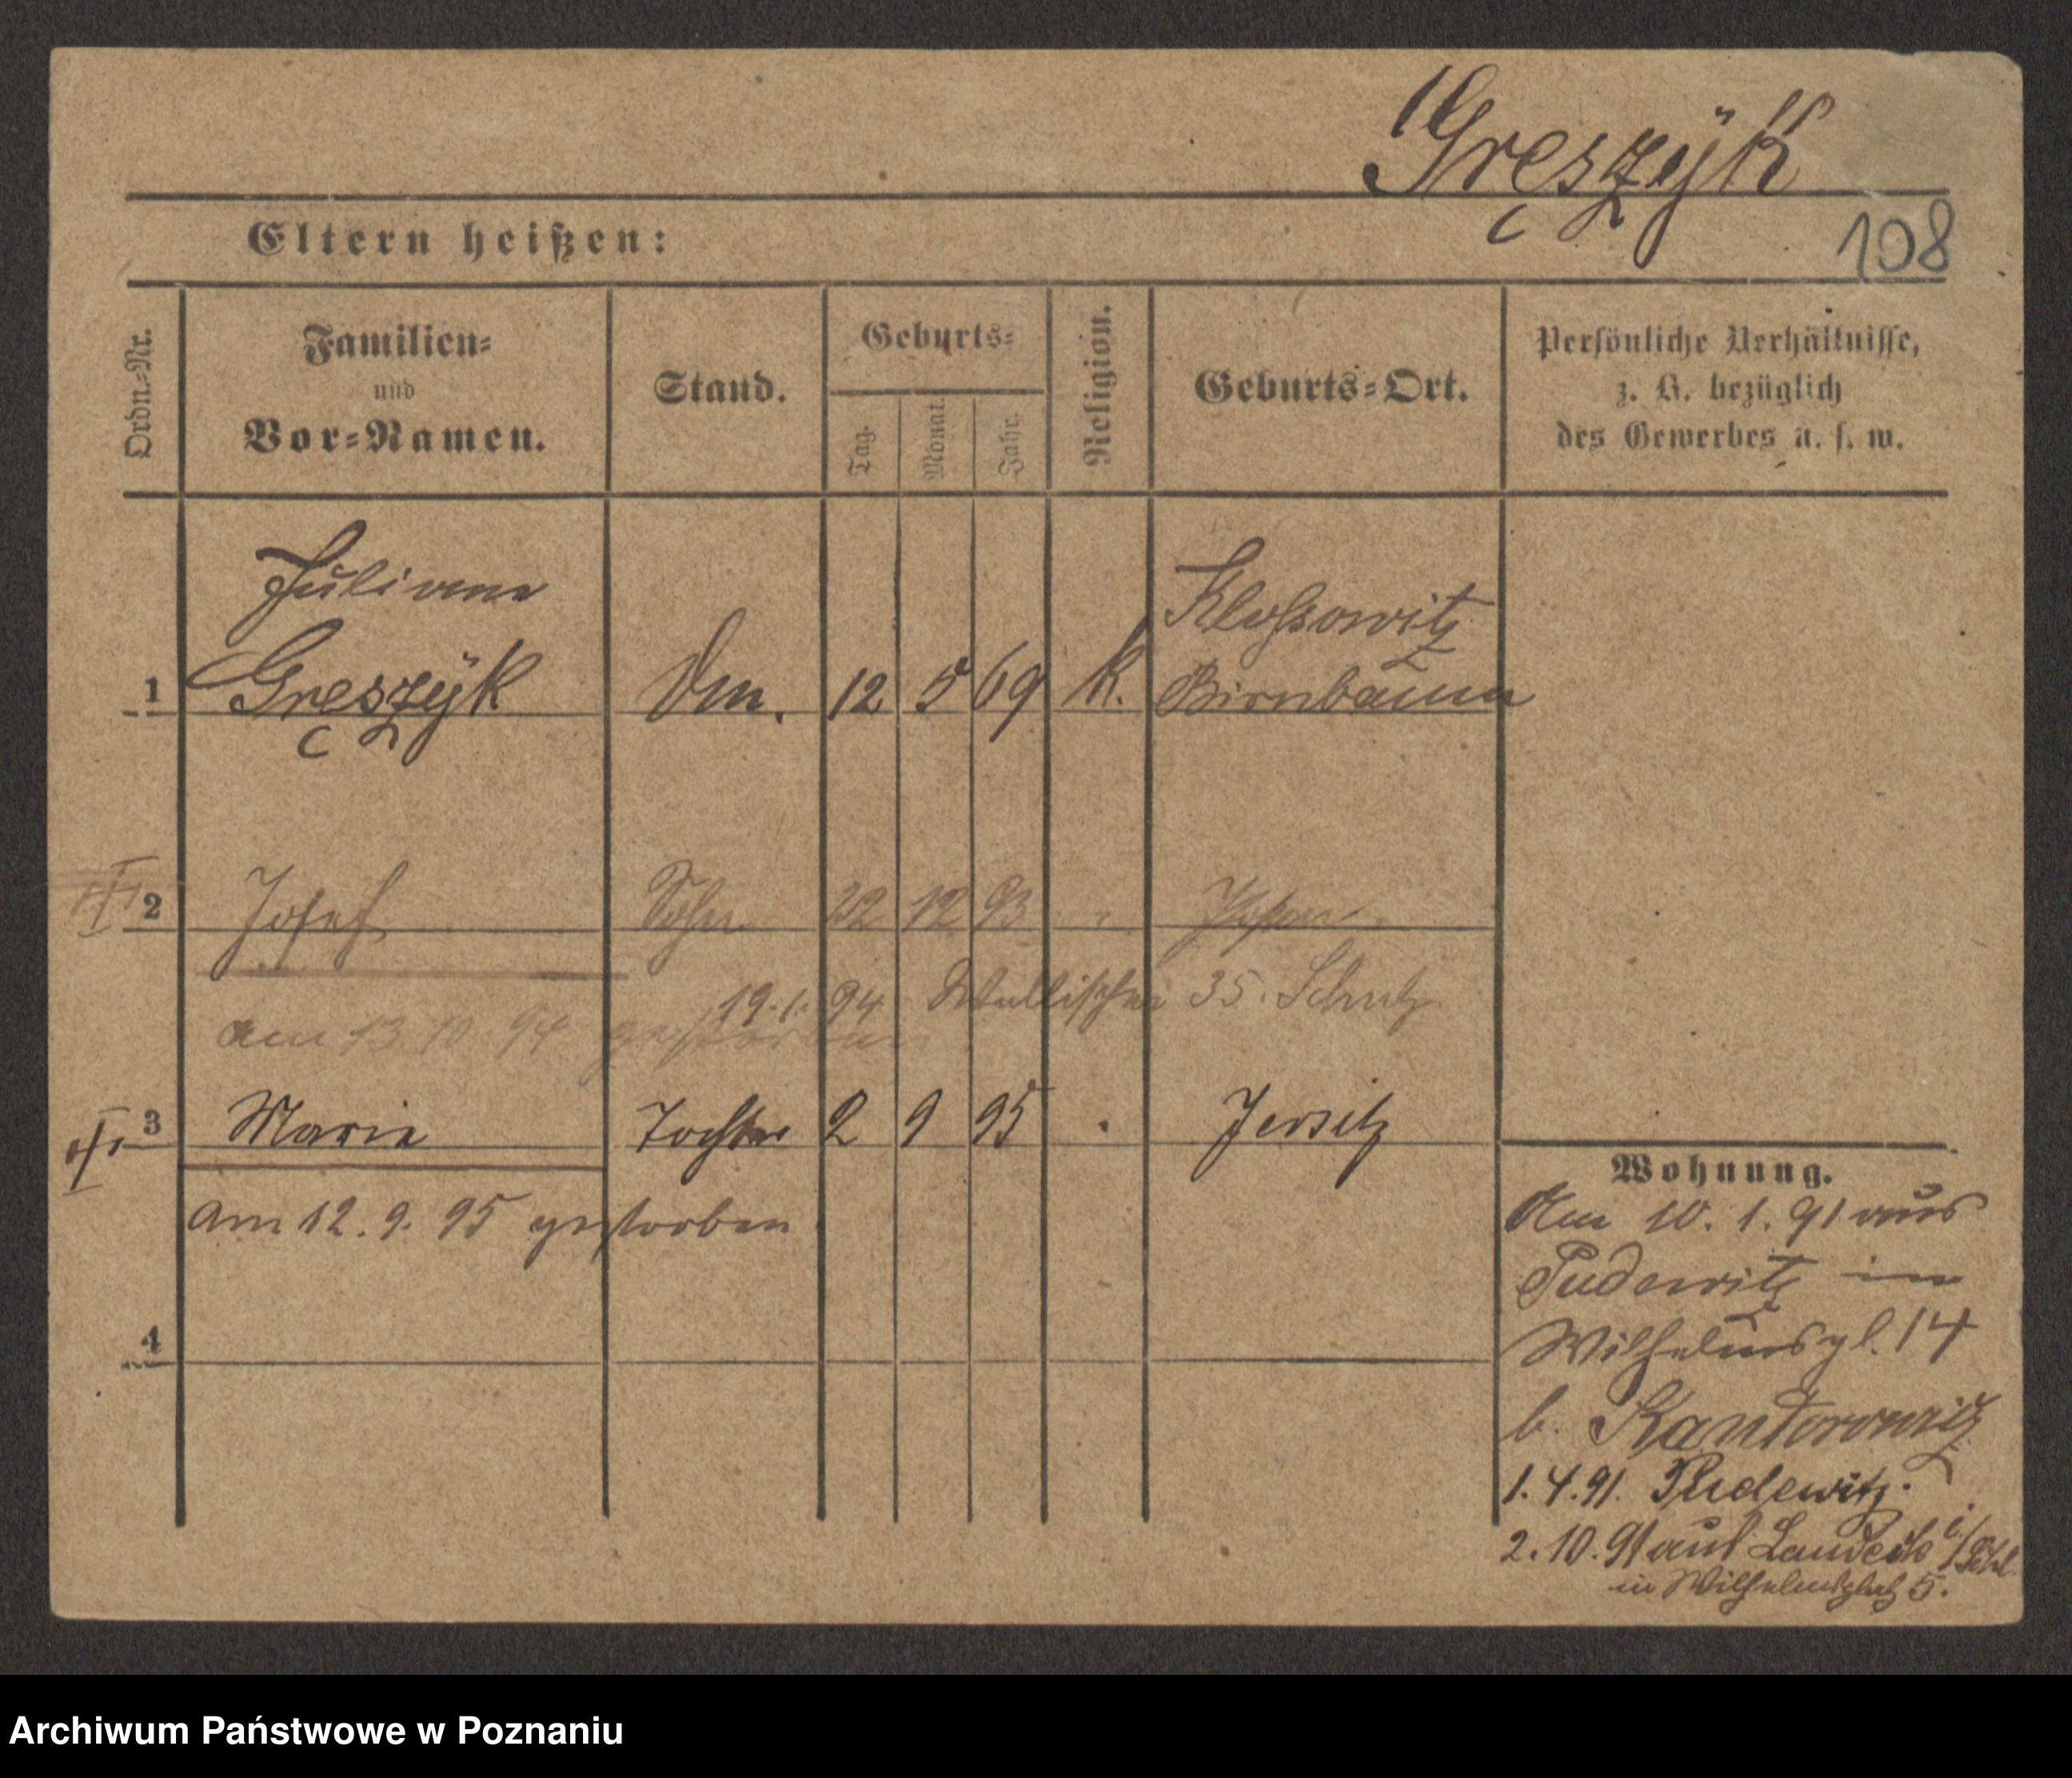 Gręszÿk
108
Eltern heißen:
Ordn.-Nr.
Familien-
und
Vor-Namen.
Stand.
Geburts-
Tag.
Monat.
Jahr.
Religion.
Geburts-Ort.
Persönliche Verhältnisse,
z. B. bezüglich
des Gewerbes u. s. w.
Juliana
Klossowitz
1 Gręszÿk 12 5 69 k. Birnbaum
2 Josef Sohn 22 12 93 " Posen
19.1.94 Wallischei 35. Schulz
am 13 10 94 gestorben
3 Marie Tochter 2 9 95 " Jersitz
am 12. 9. 95 gestorben.
4
Wohnung.
Am 10. 1. 91 aus
Pudewitz in
Wilhelmspl. 14
b. Kantorowicz
1. 4. 91. Pudewitz.
2. 10. 91 aus Landeck i/Schl.
in Wilhelmsplatz 5.
Archiwum Państwowe w Poznaniu